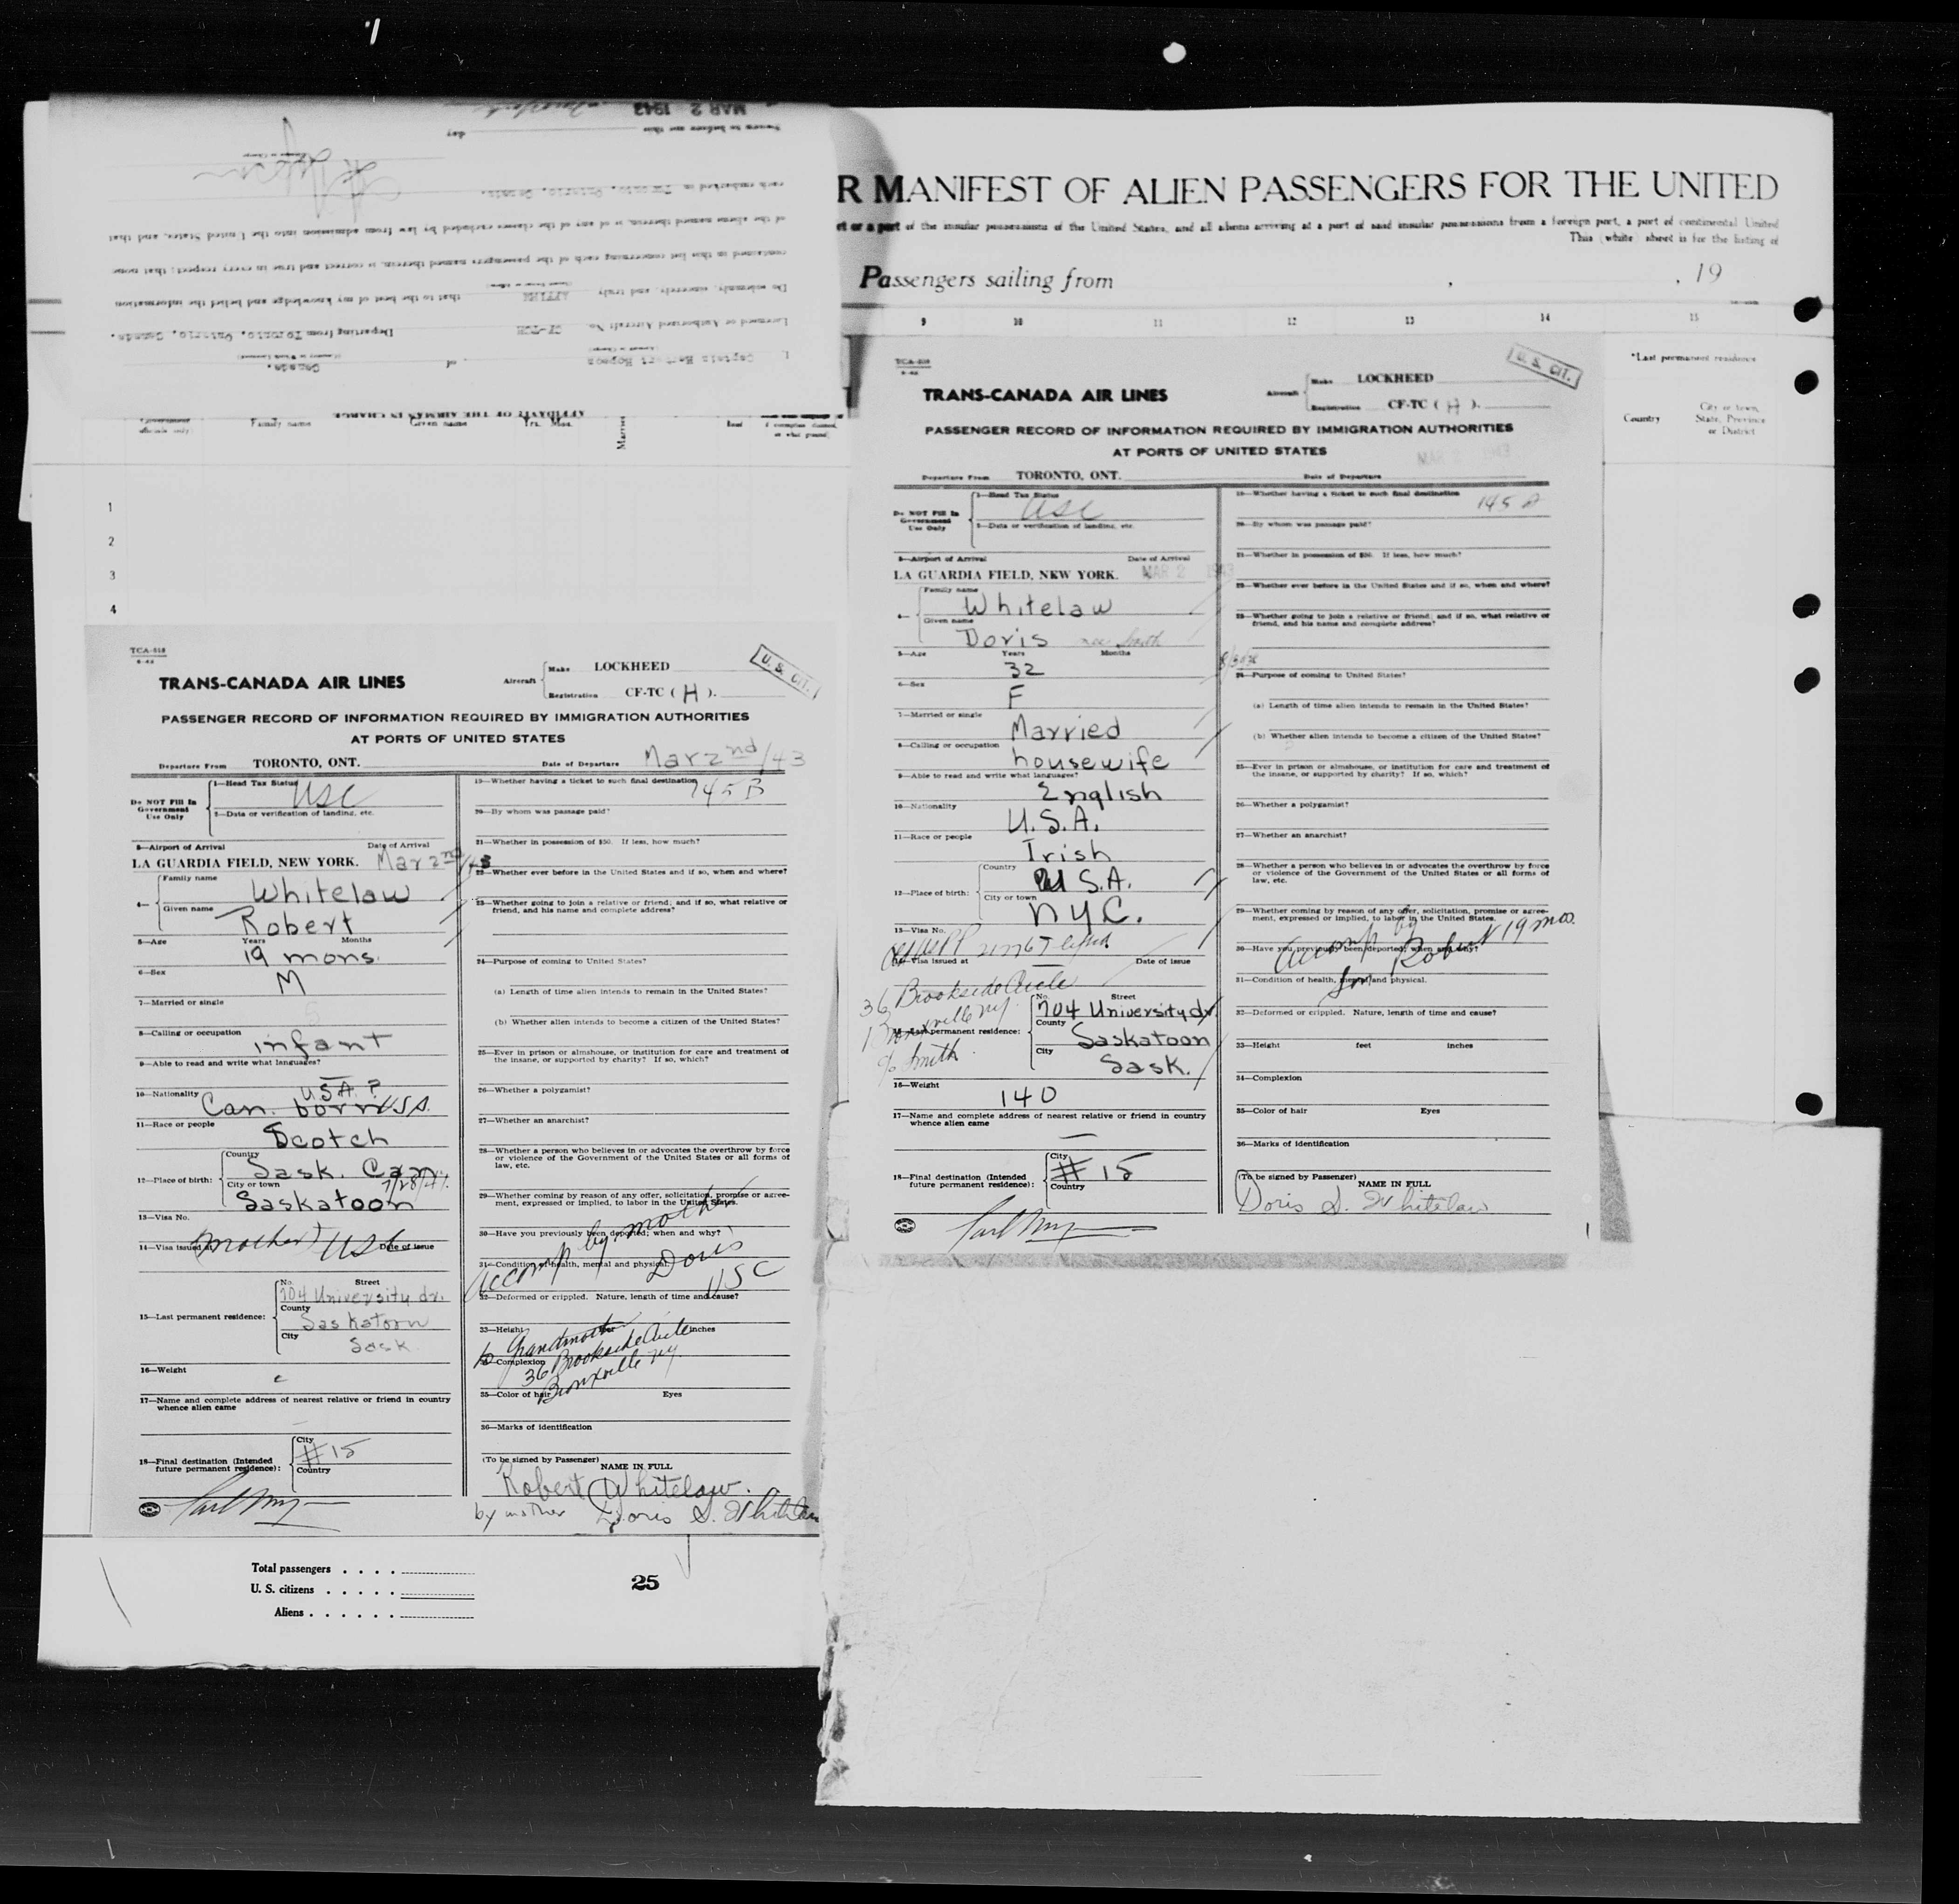 MAR 2 1943
Sworn to before me this day
each embarked at Toronto, Ontario, Canada.
of the aliens named therein, is of any of the classes excluded by law from admission into the United States, and that
contained in this list concerning each of the passengers named therein, is correct and true in every respect; that none
Do solemnly, sincerely, and truly AFFIRM that to the best of my knowledge and belief the information
Licensed or Authorized Aircraft No. CF-TCH Departing from Toronto, Ontario, Canada.
I, Captain Herbert Hopson of Canada.
AFFIDAVIT OF THE AIRMAN IN CHARGE
Family name Given name Yrs. Mos. Married Read
1
2
3
4
R MANIFEST OF ALIEN PASSENGERS FOR THE UNITED
rt or a port of the insular possessions of the United States, and all aliens arriving at a port of said insular possessions from a foreign port, a port of continental United
This (white) sheet is for the listing of
Passengers sailing from , , 19
9 10 11 12 13 14 15
*Last permanent residence
Country City or town, State, Province or District
TCA-518
TRANS-CANADA AIR LINES
Aircraft Make LOCKHEED
Registration CF-TC ( H ).
U. S. CIT.
PASSENGER RECORD OF INFORMATION REQUIRED BY IMMIGRATION AUTHORITIES
AT PORTS OF UNITED STATES
Departure From TORONTO, ONT. Date of Departure Mar 2nd/43
Do NOT Fill In Government Use Only
1—Head Tax Status USC
2—Data or verification of landing, etc.
3—Airport of Arrival Date of Arrival
LA GUARDIA FIELD, NEW YORK. Mar 2nd/43
4— Family name Whitelaw
Given name Robert
5—Age Years Months
19 mons.
6—Sex M
7—Married or single
8—Calling or occupation
infant
9—Able to read and write what languages?
10—Nationality U.S.A. ?
Can. born USA.
11—Race or people
Scotch
12—Place of birth: Country Sask. Can.
7/28/41.
City or town Saskatoon
13—Visa No.
14—Visa issued at Date of issue
(mother) USC
15—Last permanent residence: No. Street
704 University dr.
County
Saskatoon
City
Sask
16—Weight
17—Name and complete address of nearest relative or friend in country
whence alien came
18—Final destination (Intended
future permanent residence): City
# 15
Country
19—Whether having a ticket to such final destination
145 B
20—By whom was passage paid?
21—Whether in possession of $50. If less, how much?
22—Whether ever before in the United States and if so, when and where?
23—Whether going to join a relative or friend; and if so, what relative or
friend, and his name and complete address?
24—Purpose of coming to United States?
(a) Length of time alien intends to remain in the United States?
(b) Whether alien intends to become a citizen of the United States?
25—Ever in prison or almshouse, or institution for care and treatment of
the insane, or supported by charity? If so, which?
26—Whether a polygamist?
27—Whether an anarchist?
28—Whether a person who believes in or advocates the overthrow by force
or violence of the Government of the United States or all forms of
law, etc.
29—Whether coming by reason of any offer, solicitation, promise or agree-
ment, expressed or implied, to labor in the United States.
30—Have you previously been deported; when and why?
31—Condition of health, mental and physical.
accomp by mother
Doris
USC
32—Deformed or crippled. Nature, length of time and cause?
33—Height inches
to Grandmother
34—Complexion
36 Brookside Circle
Bronxville NY.
35—Color of hair Eyes
36—Marks of identification
(To be signed by Passenger)
NAME IN FULL
Robert Whitelaw.
by mother Doris S. Whitelaw
Total passengers . . . .
U. S. citizens . . . . .
Aliens . . . . . .
25
TCA-518
TRANS-CANADA AIR LINES
Aircraft Make LOCKHEED
Registration CF-TC ( H ).
U. S. CIT.
PASSENGER RECORD OF INFORMATION REQUIRED BY IMMIGRATION AUTHORITIES
AT PORTS OF UNITED STATES
MAR 2 1943
Departure From TORONTO, ONT. Date of Departure
Do NOT Fill In Government Use Only
1—Head Tax Status USC
2—Data or verification of landing, etc.
3—Airport of Arrival Date of Arrival
LA GUARDIA FIELD, NEW YORK. MAR 2 1943
4— Family name Whitelaw
Given name Doris nee Smith
5—Age Years Months
32
6—Sex F
7—Married or single
Married
8—Calling or occupation
housewife
9—Able to read and write what languages?
English
10—Nationality
U.S.A.
11—Race or people
Irish
12—Place of birth: Country
U.S.A.
City or town
NYC.
13—Visa No.
14—Visa issued at Date of issue
36 Brookside Circle
Bronxville NY.
c/o Smith.
15—Last permanent residence: No. Street
704 University dr.
County
Saskatoon
City
Sask.
16—Weight
140
17—Name and complete address of nearest relative or friend in country
whence alien came
18—Final destination (Intended
future permanent residence): City
# 15
Country
19—Whether having a ticket to such final destination
145 A
20—By whom was passage paid?
21—Whether in possession of $50. If less, how much?
22—Whether ever before in the United States and if so, when and where?
23—Whether going to join a relative or friend; and if so, what relative or
friend, and his name and complete address?
24—Purpose of coming to United States?
(a) Length of time alien intends to remain in the United States?
(b) Whether alien intends to become a citizen of the United States?
25—Ever in prison or almshouse, or institution for care and treatment of
the insane, or supported by charity? If so, which?
26—Whether a polygamist?
27—Whether an anarchist?
28—Whether a person who believes in or advocates the overthrow by force
or violence of the Government of the United States or all forms of
law, etc.
29—Whether coming by reason of any offer, solicitation, promise or agree-
ment, expressed or implied, to labor in the United States.
30—Have you previously been deported; when and why?
accomp by Robert 19 mos.
son
31—Condition of health, mental and physical.
32—Deformed or crippled. Nature, length of time and cause?
33—Height feet inches
34—Complexion
35—Color of hair Eyes
36—Marks of identification
(To be signed by Passenger)
NAME IN FULL
Doris S. Whitelaw